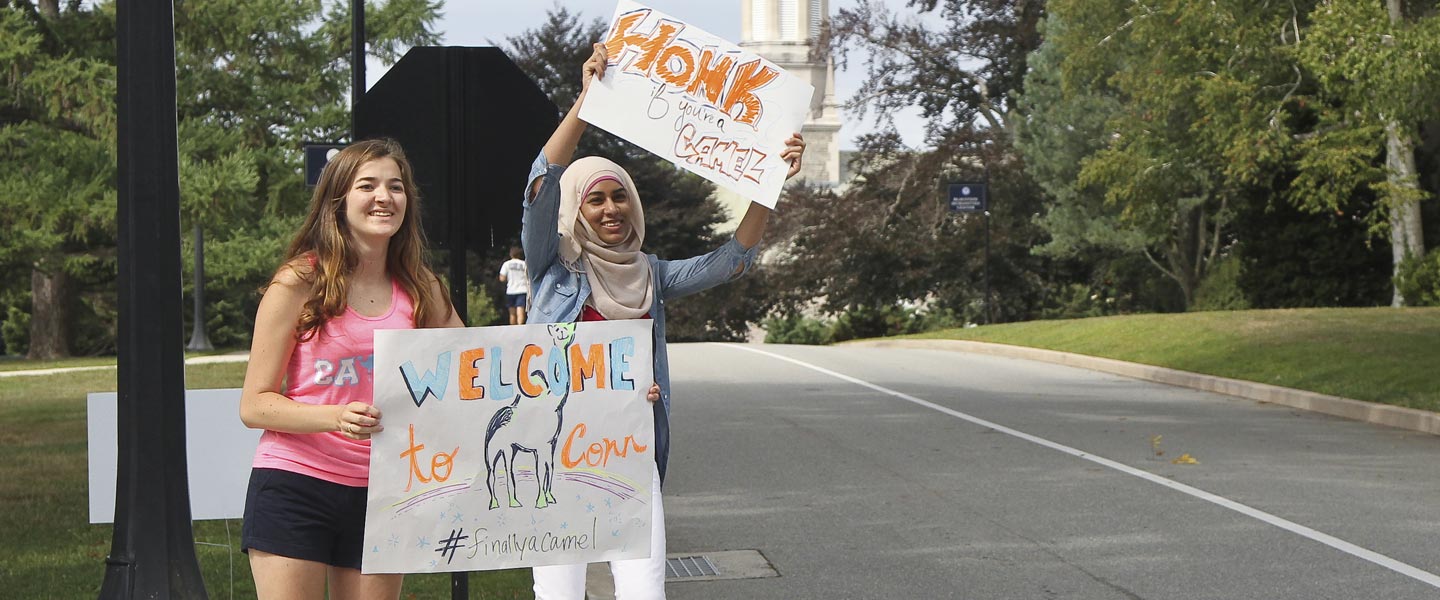 HONK
if you're a
CAMEL
WELCOME
to Conn
#finallyacamel